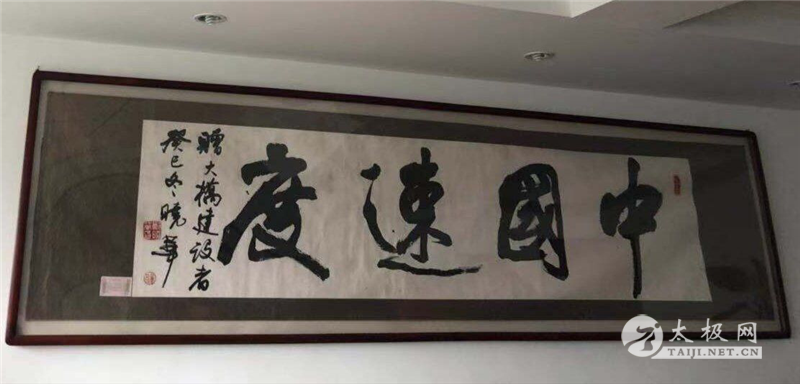 中國速度
贈大橋建设者
癸巳冬曉華
太极网
TAIJI.NET.CN